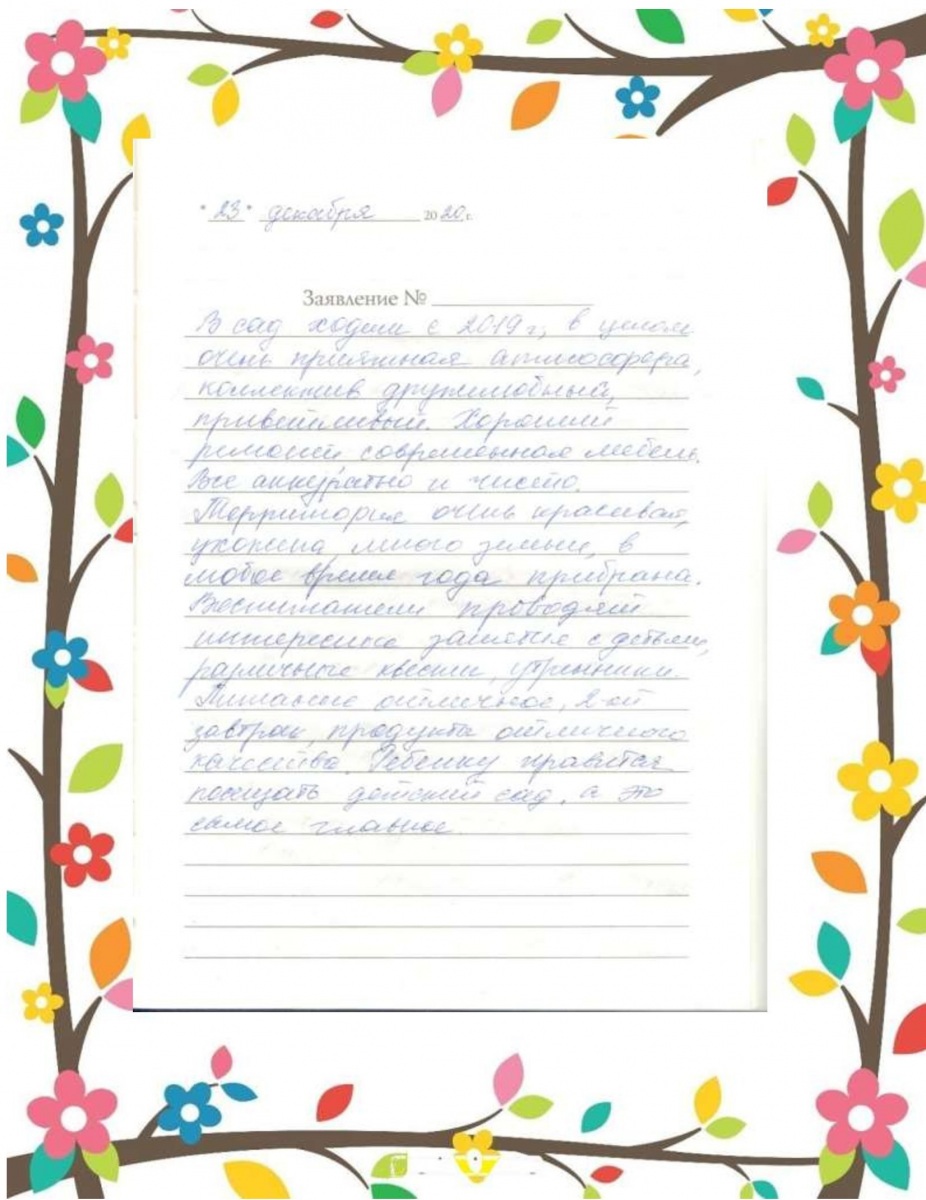 "23" декабря 2020 г.
Заявление №
В сад ходим с 2019 г., в целом
очень приятная атмосфера,
коллектив дружелюбный,
приветливый. Хороший
ремонт современная мебель.
Все аккуратно и чисто.
Территория очень красивая,
ухожена, много зелени, в
любое время года прибрана.
Воспитатели проводят
интересные занятия с детьми,
различные квесты, утренники.
Питание отличное, 2-ой
завтрак, продукты отличного
качества. Ребенку нравится
посещать детский сад, а это
самое главное.